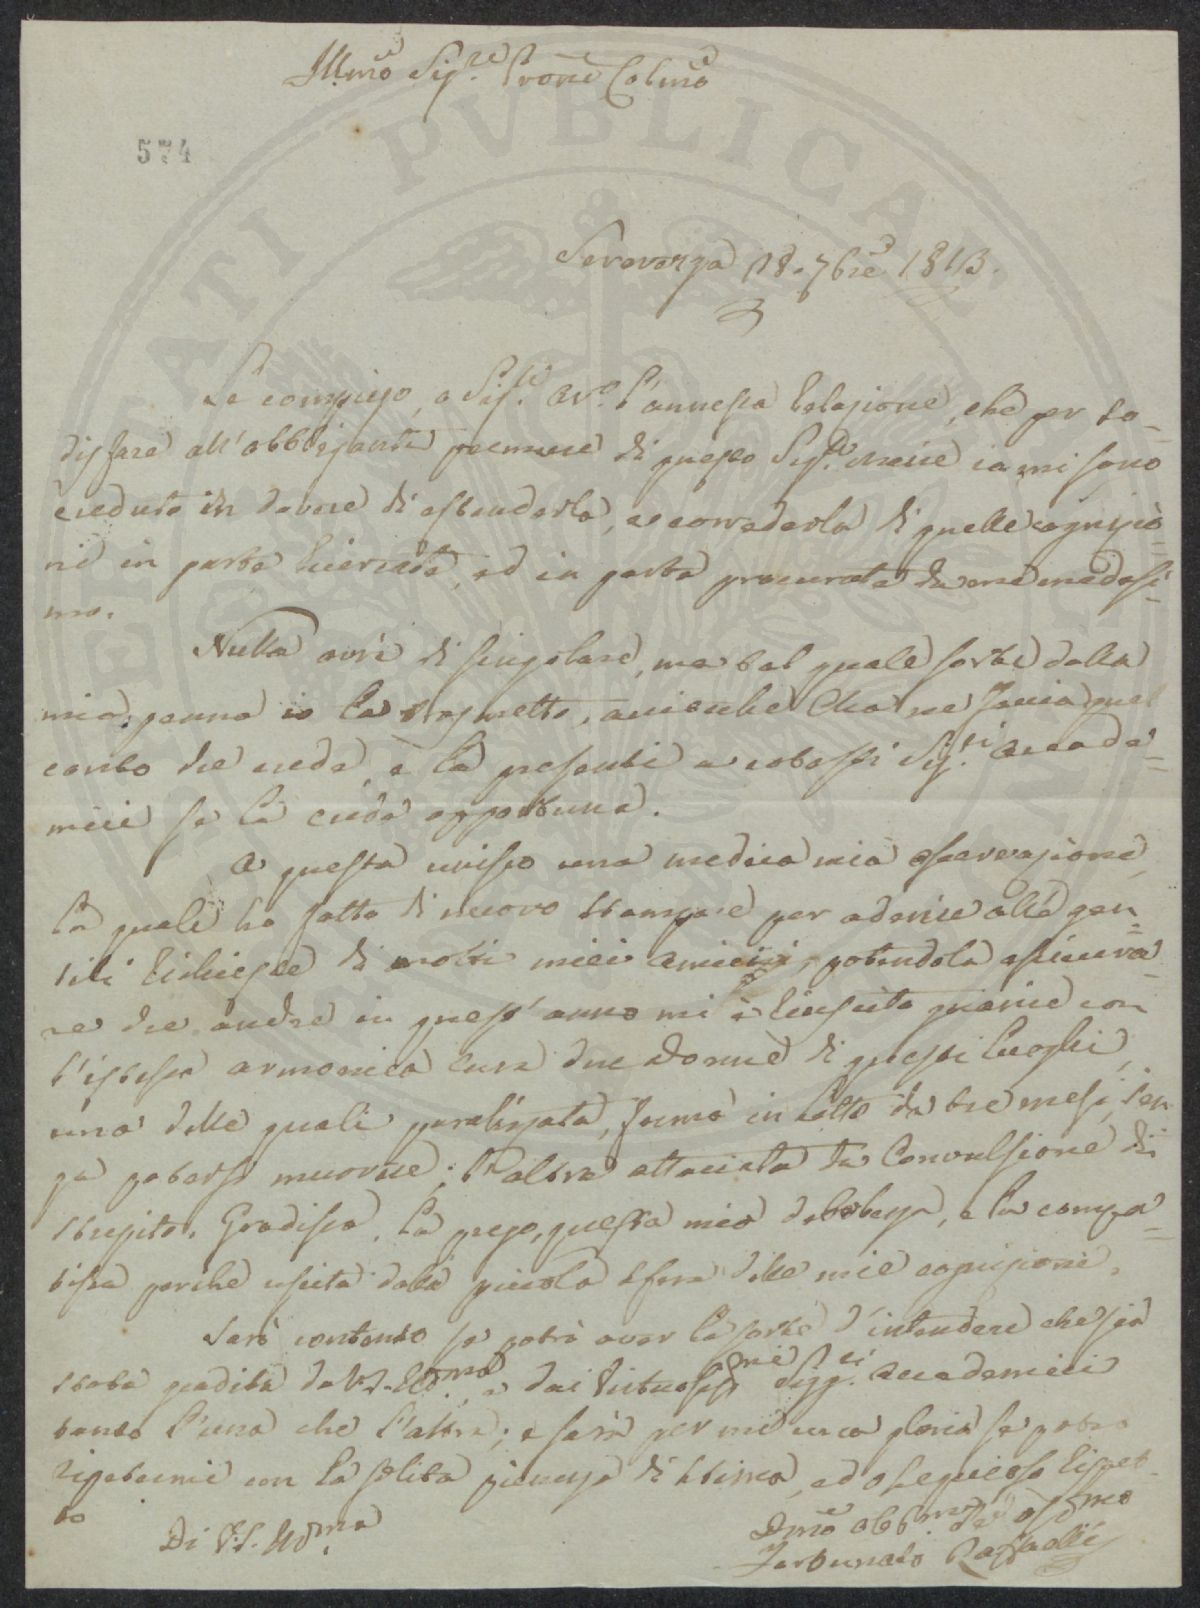 Ill.mo Sig.re Prone Colmo
574
Seravezza 18. 7bre 1813.
Le compiego, o Sig.r Av.o l'annessa Relazione, che per so-
disfare all'obbligante premure di questo Sig.r Maire io mi sono
creduto in dovere di estenderla, e corredarla di quelle cognizio-
ni in parte ricercate, ed in parte procurate da me medesi-
mo.
Nulla avvi di singolare, ma tal quale sortì dalla
mia penna io la trasmetto, acciocchè Ella ne faccia quel
conto che crede, e la presenti a cotesti Sig.ri Accade-
mici se la crede opportuna.
A questa unisco una medica mia osservazione,
la quale ho fatto di nuovo stampare per aderire alle gen-
tili richieste di molti miei amici, potendola assicura-
re che anche in quest'anno mi è riuscito guarire con
l'istessa armonica cura due donne di questi luoghi,
una delle quali paralizzata, ferma in letto da tre mesi, sen-
za potersi muovere; l'altra attaccata da Convulsione di
strepito. Gradisca, la prego, questa mia debolezza, e la compa-
tisca perchè uscita dalla piccola sfera delle mie cognizioni.
Sarò contento se potrò aver la sorte d'intendere che sia
stata gradita da V.S. Ill.ma e dai Virtuosissmi Sigg.ri Accademici
tanto l'una che l'altra; e sarà per me una gloria se potrò
ripetermi con la solita pienezza di stima, ed ossequioso rispet-
to
Di V.S. Ill.ma
Dmo Obb.mo
Fortunato Raffaelli